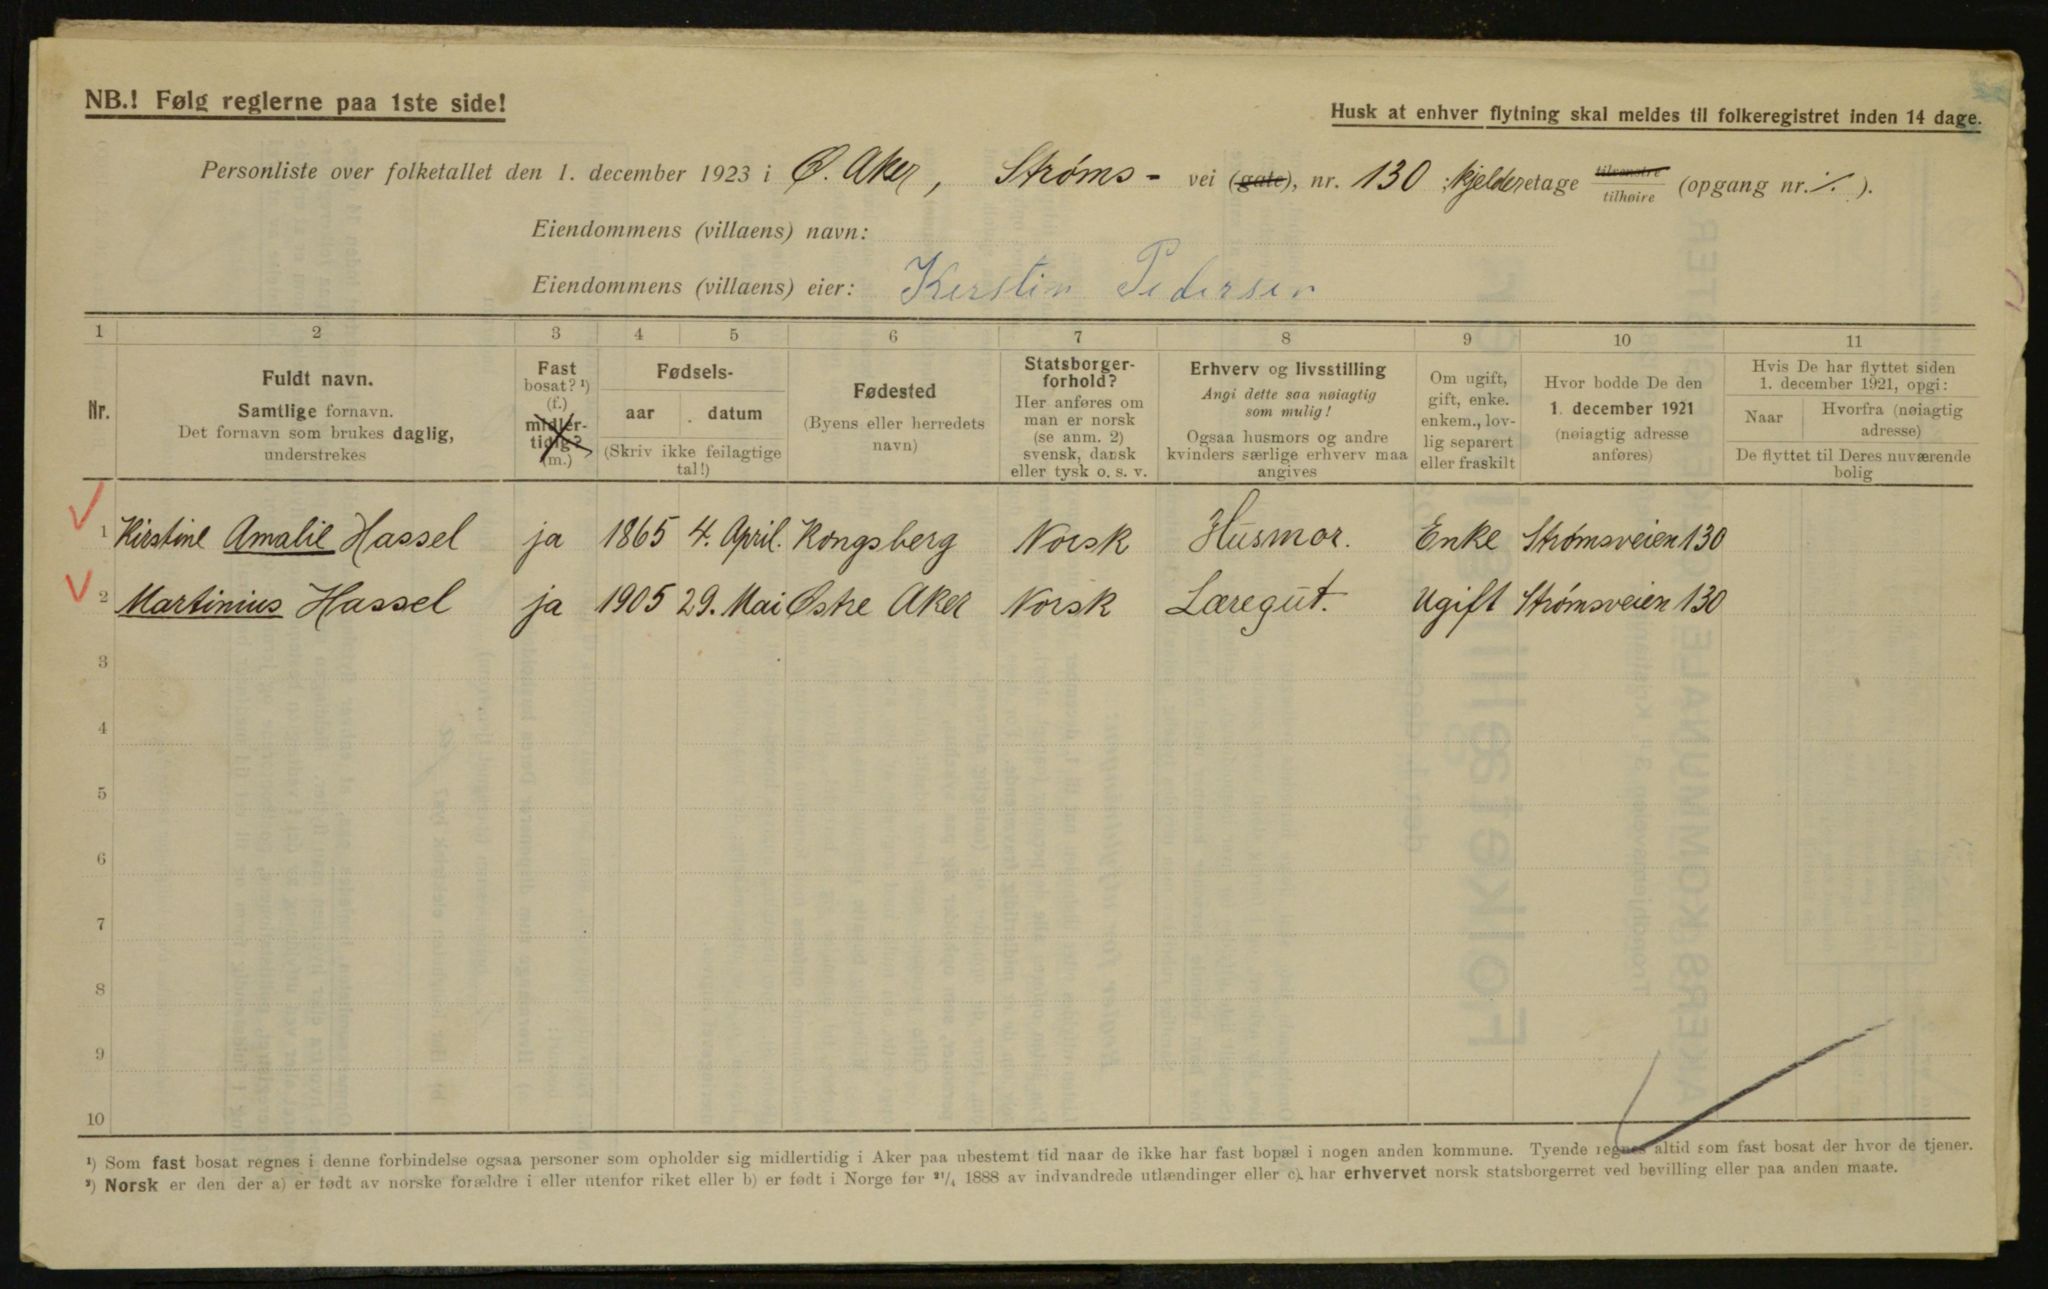 NB.! Følg reglerne paa 1ste side!
Husk at enhver flytning skal meldes til folkeregistret inden 14 dage.
Personliste over folketallet den 1. december 1923 i Ø. Aker, Strøms- vei (gate), nr. 130 kjelderetage tilvenstre tilhøire (opgang nr. ).
Eiendommens (villaens) navn:
Eiendommens (villaens) eier: Kerstin Pedersen
1 2 3 4 5 6 7 8 9 10 11
Nr.
Fuldt navn.
Samtlige fornavn.
Det fornavn som brukes daglig,
understrekes
Fast
bosat? ¹)
(f.)
midler-
tidig?
(m.)
Fødsels-
aar datum
(Skriv ikke feilagtige
tal!)
Fødested
(Byens eller herredets
navn)
Statsborger-
forhold?
Her anføres om
man er norsk
(se anm. 2)
svensk, dansk
eller tysk o. s. v.
Erhverv og livsstilling
Angi dette saa nøiagtig
som mulig!
Ogsaa husmors og andre
kvinders særlige erhverv maa
angives
Om ugift,
gift, enke.
enkem., lov-
lig separert
eller fraskilt
Hvor bodde De den
1. december 1921
(nøiagtig adresse
anføres)
Hvis De har flyttet siden
1. december 1921, opgi:
Naar Hvorfra (nøiagtig
adresse)
De flyttet til Deres nuværende
bolig
1 Kirstine Amalie Hassel ja 1865 4. April. Kongsberg Norsk Husmor. Enke Strømsveien 130
2 Martinius Hassel ja 1905 29. Mai Østre Aker Norsk Læregut. Ugift Strømsveien 130
3
4
5
6
7
8
9
10
¹) Som fast bosat regnes i denne forbindelse ogsaa personer som opholder sig midlertidig i Aker paa ubestemt tid naar de ikke har fast bopæl i nogen anden kommune. Tyende regnes altid som fast bosat der hvor de tjener.
²) Norsk er den der a) er født av norske forældre i eller utenfor riket eller b) er født i Norge før ²¹/₄ 1888 av indvandrede utlændinger eller c) har erhvervet norsk statsborgerret ved bevilling eller paa anden maate.